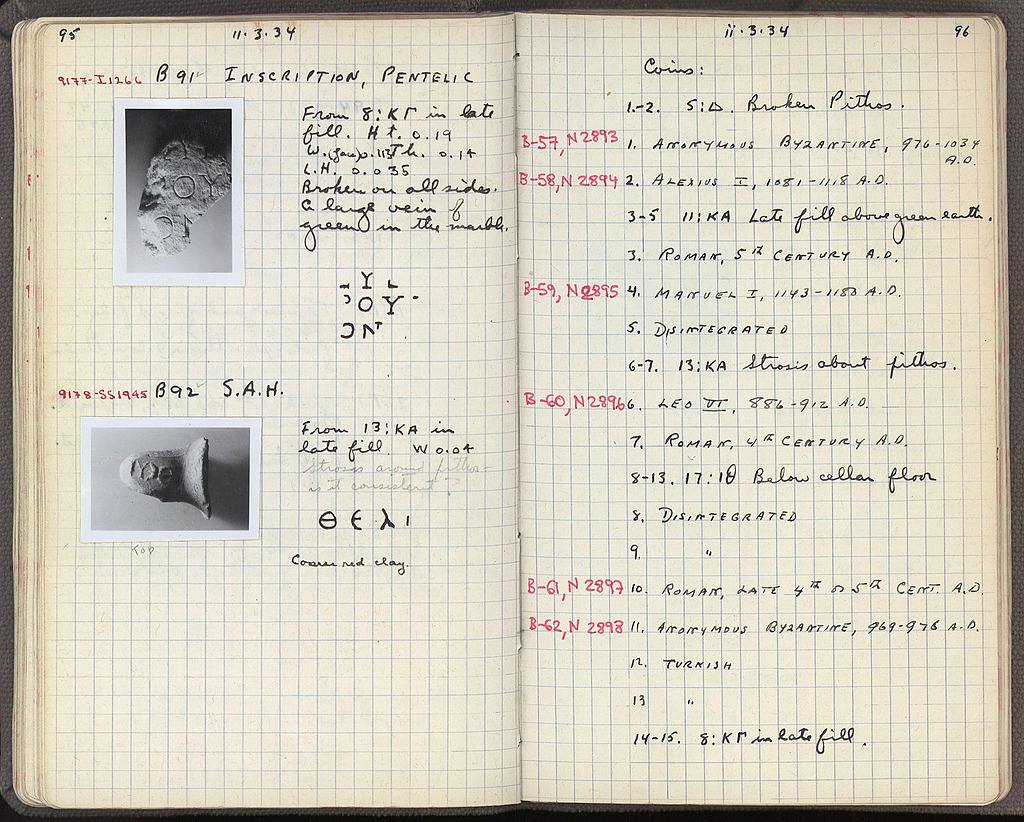 95
11·3·34
9177-I1266 B 91 INSCRIPTION, PENTELIC
From 8:ΚΓ in late
fill. Ht. 0.19
W. (face) 0.113 Th. 0.14
L.H. 0.035
Broken on all sides.
A large vein of
green in the marble.
Υ
ΟΥ
9178-SS1945 B92 S.A.H.
From 13:ΚΑ in
late fill W 0.04
Strosis around pithos—
is it consistent?
Θ Ε λ ι
top
Coarse red clay.
ii·3·34
96
Coins:
1.-2. 5:Δ. Broken Pithos.
B-57, N2893 1. ANONYMOUS BYZANTINE, 976-1034
A.D.
B-58, N2894 2. ALEXIUS I, 1081-1118 A.D.
3-5 11:ΚΑ Late fill above green earth.
3. ROMAN, 5TH CENTURY A.D.
B-59, N2895 4. MANUEL I, 1143-1180 A.D.
5. DISINTEGRATED
6-7. 13:ΚΑ Strosis about pithos.
B-60, N2896 6. LEO VI, 886-912 A.D.
7. ROMAN, 4TH CENTURY A.D.
8-13. 17:ΙΘ Below cellar floor
8. DISINTEGRATED
9. "
B-61, N2897 10. ROMAN, LATE 4TH or 5TH CENT. A.D.
B-62, N2898 11. ANONYMOUS BYZANTINE, 969-976 A.D.
12. TURKISH
13 "
14-15. 8:ΚΓ in late fill.